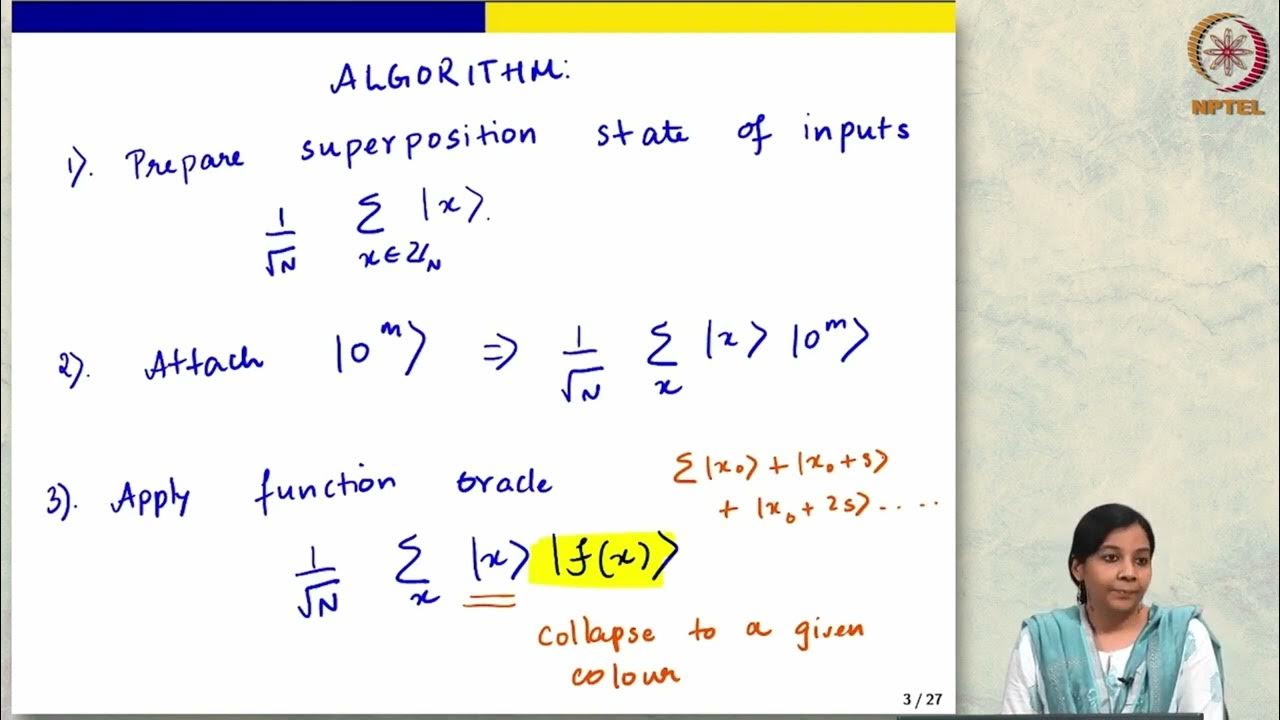 ALGORITHM:
1). Prepare superposition state of inputs
1/√N Σ |x⟩.
x∈ℤN
2). Attach |0^m⟩ ⇒ 1/√N Σ |x⟩ |0^m⟩
x
3). Apply function oracle
Σ|x₀⟩ + |x₀+s⟩
+ |x₀+2s⟩ . . . .
1/√N Σ |x⟩ |f(x)⟩
x
collapse to a given
colour
3 / 27
NPTEL